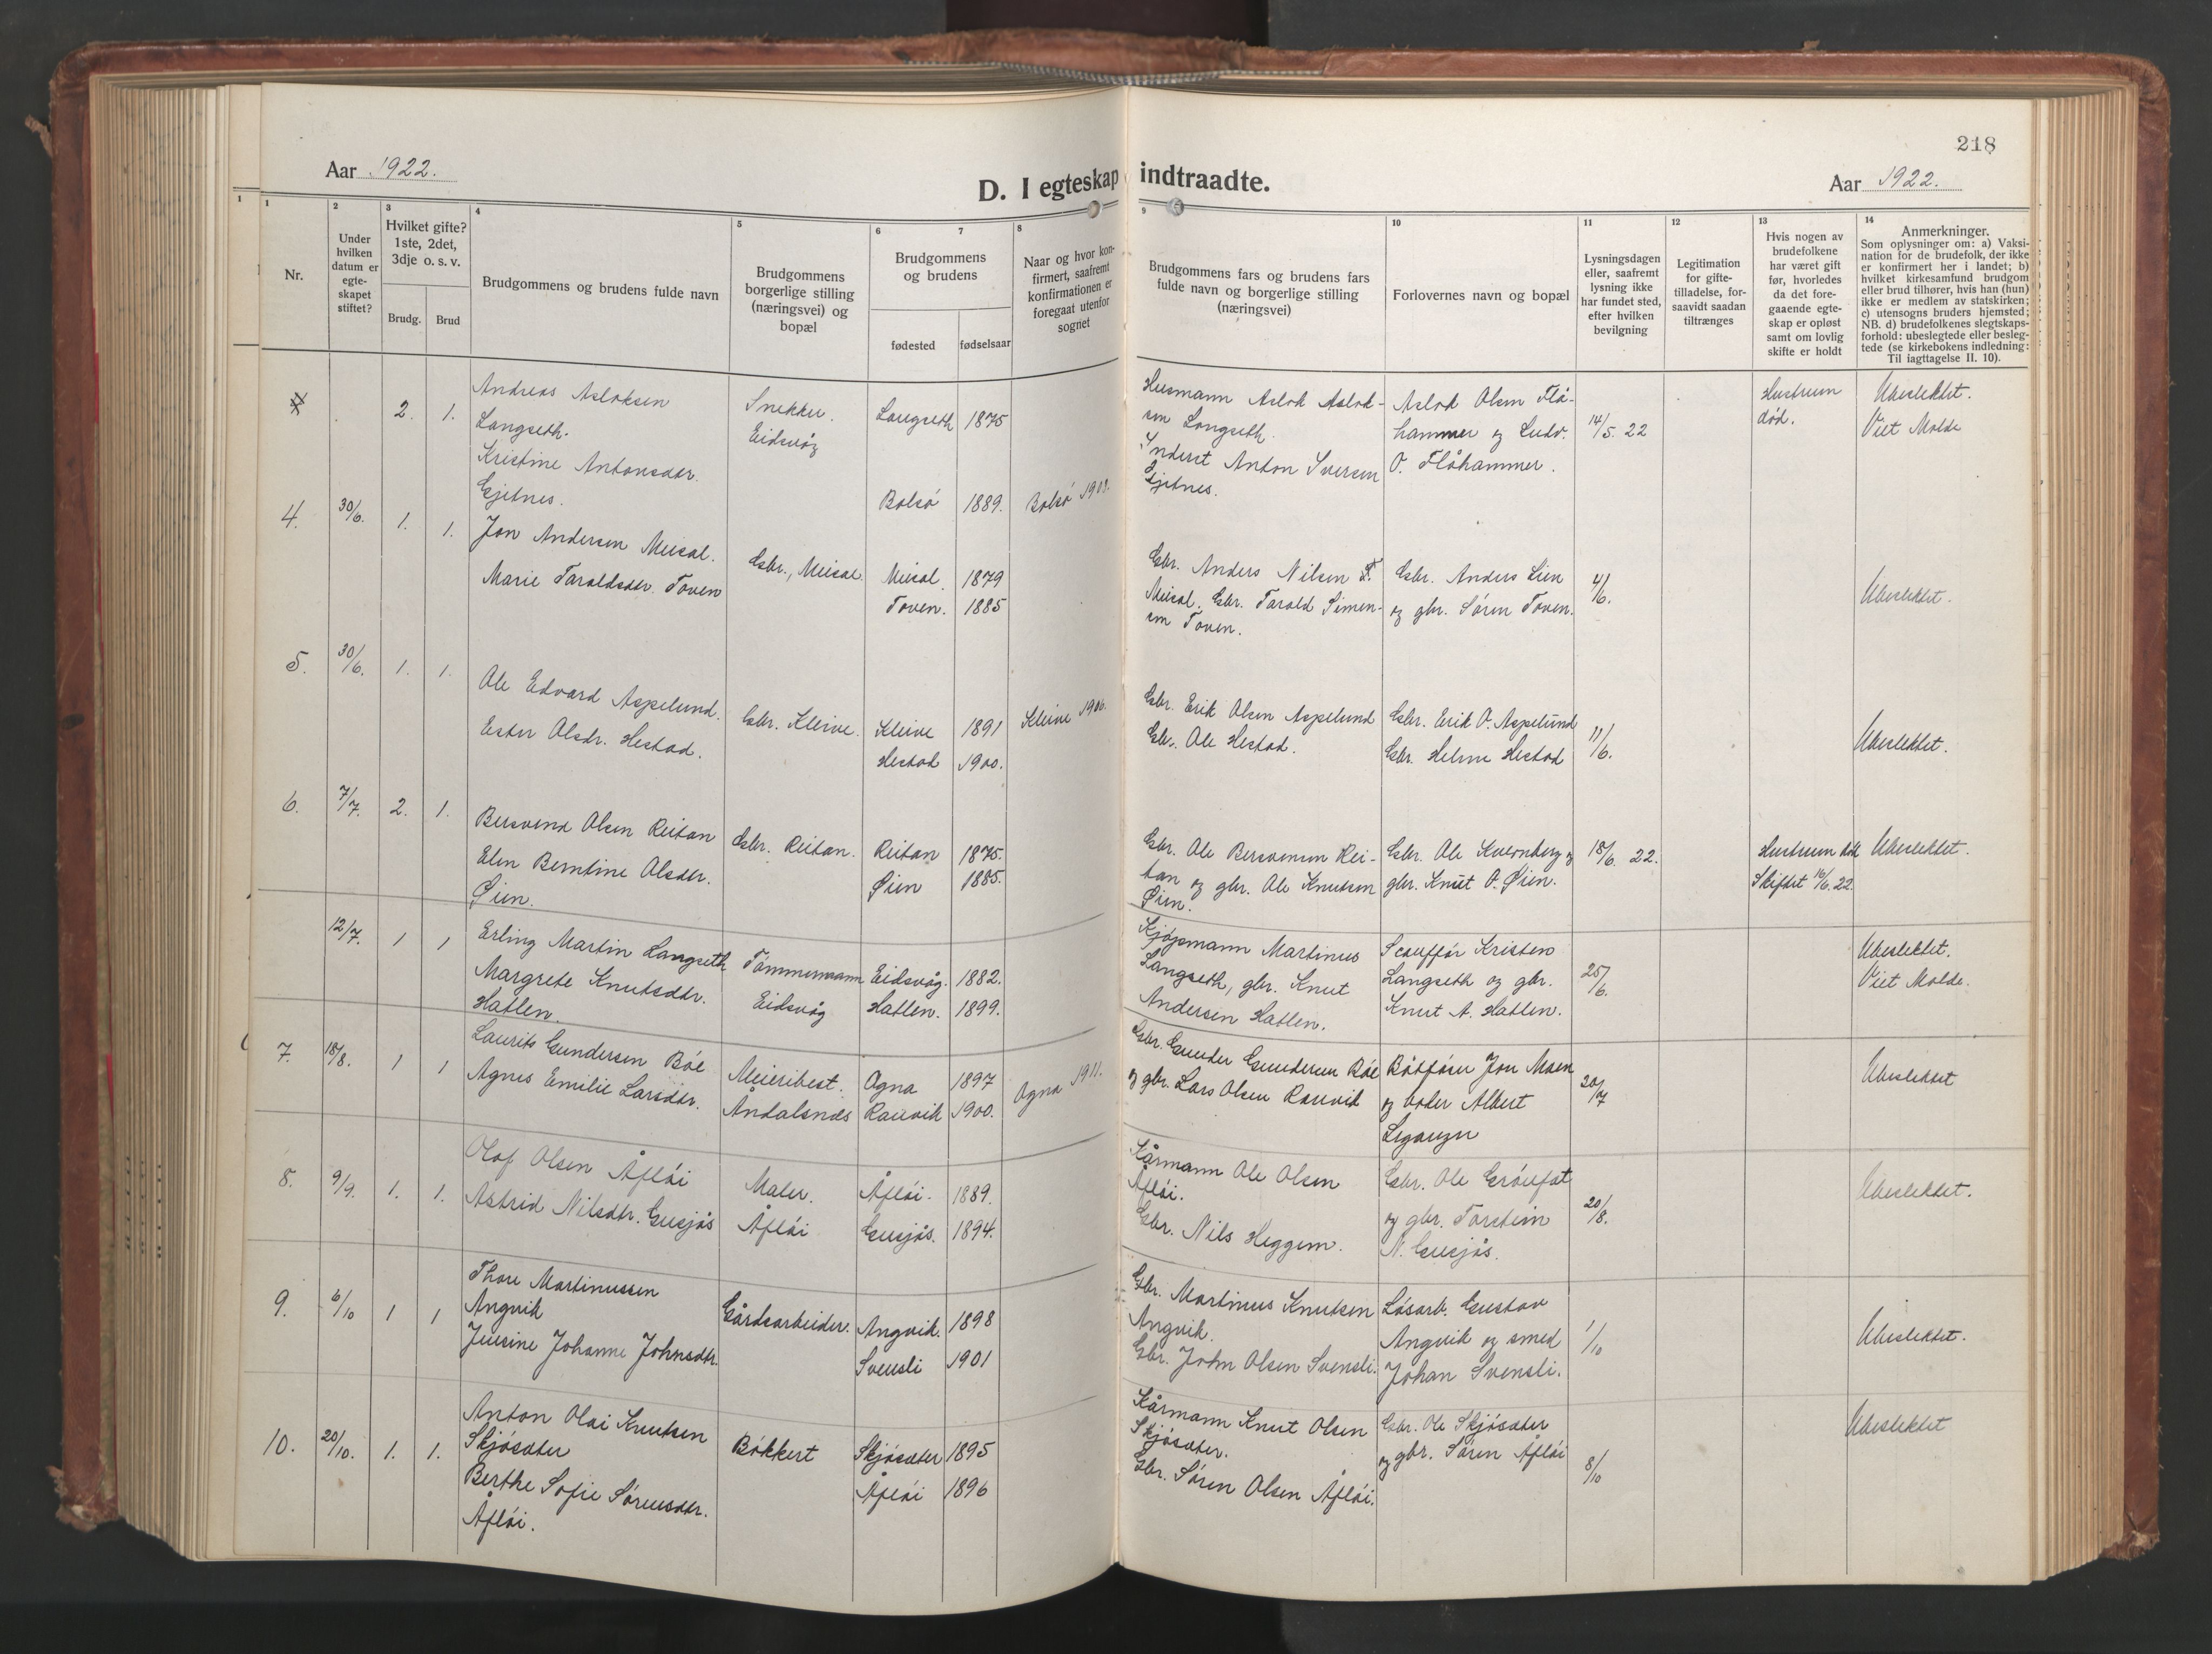 218
Aar 1922.
D. I egteskap indtraadte.
Aar 1922.
1
1 2 3 4 5 6 7 8 9 10 11 12 13 14
Nr.
Under hvilken datum er egte-skapet stiftet?
Hvilket gifte? 1ste, 2det, 3dje o. s. v.
Brudg. Brud
Brudgommens og brudens fulde navn
Brudgommens borgerlige stilling (næringsvei) og bopæl
Brudgommens og brudens
fødested fødselsaar
Naar og hvor kon-firmert, saafremt konfirmationen er foregaat utenfor sognet
Brudgommens fars og brudens fars fulde navn og borgerlige stilling (næringsvei)
Forlovernes navn og bopæl
Lysningsdagen eller, saafremt lysning ikke har fundet sted, efter hvilken bevilgning
Legitimation for gifte-tilladelse, for-saavidt saadan tiltrænges
Hvis nogen av brudefolkene har været gift før, hvorledes da det fore-gaaende egte-skap er opløst samt om lovlig skifte er holdt
Anmerkninger.
Som oplysninger om: a) Vaksi-nation for de brudefolk, der ikke er konfirmert her i landet; b) hvilket kirkesamfund brudgom eller brud tilhører, hvis han (hun) ikke er medlem av statskirken; c) utensogns bruders hjemsted; NB. d) brudefolkenes slegtskaps-forhold: ubeslegtede eller besleg-tede (se kirkebokens indledning: Til iagttagelse II. 10).
2. 1. Andreas Aslaksen
Langseth.
Kristine Antonsdtr.
Gjetnes.
Snekker.
Eidsvåg
Langseth 1875
Bolsö 1889. Bolsö 1903.
Husmann Aslak Aslak-
sen Langseth.
Inderst Anton Iversen
Gjetnes.
Aslak Olsen Flå-
hammer og Ludv.
O. Flåhammer.
14/5. 22
Hustrum
død.
Ubeslektet.
Viet Molde
4. 30/6. 1. 1. Jon Andersen Meisal.
Marie Taraldsdtr. Toven
Gbr., Meisal.
Meisal. 1879
Toven. 1885
Gbr. Anders Nilsen T.
Meisal. Gbr. Tarald Simen-
sen Toven.
Gbr. Anders Lien
og gbr. Sören Toven.
4/6.
Ubeslektet.
5. 30/6. 1. 1. Ole Edvard Aspelund.
Ester Olsdr. Hestad.
Gbr. Kleive.
Kleive 1891 Kleive 1906.
Hestad 1900.
Gbr. Erik Olsen Aspelund
Gbr. Ole Hestad.
Gbr. Erik O. Aspelund
Gbr. Helme Hestad
11/6.
Ubeslektet.
6. 7/7. 2. 1. Bersvend Olsen Reitan
Elen Berntine Olsdtr.
Øien.
Gbr. Reitan.
Reitan 1875.
Øien 1885.
Gbr. Ole Bersvensen Rei-
tan og gbr. Ole Knutsen
Øien.
Gbr. Ole Kvernberg og
gbr. Knut O. Øien.
18/6. 22.
Hustrum död
Skiftet 16/6. 22.
Ubeslektet.
12/7. 1 1 Erling Martin Langseth
Margrete Knutsdtr.
Hatlen.
Tömmermann
Eidsvåg
Eidsvåg. 1882.
Hatlen. 1899.
Kjöpmann Martinus
Langseth, gbr. Knut
Andersen Hatlen.
Scaufför Kristen
Langseth og gbr.
Knut A. Hatlen.
25/6.
Ubeslektet.
Viet Molde.
7. 18/8. 1 1 Laurits Gundersen Böe
Agnes Emilie Larsdtr.
Meieribest.
Åndalsnes
Ogna 1897 Ogna 1911.
Rauvik 1900.
Gbr. Gunder Gundersen Böe
og gbr. Lars Olsen Rauvik
Båtförer Jon Moen
og Albert
20/7
Ubeslektet
8. 9/9. 1. 1. Olaf Olsen Åflöi
Astrid Nilsdtr. Gusjås
Maler.
Åflöi
Åflöi. 1889.
Gusjås. 1894.
Kårmann Ole Olsen
Åflöi.
Gbr. Nils Heggem.
Gbr. Ole Gröufat
og gbr. Torstein
N. Gusjås.
20/8.
Ubeslektet.
9. 6/10 1 1 Thore Martinussen
Angvik
Jensine Johanne Johnsdtr.
Gårdsarbeider.
Angvik. 1898
Svensli 1901
Gbr. Martinus Knutsen
Angvik.
Gbr. John Olsen Svensli.
Lösarb. Gustav
Angvik og smed
Johan Svensli.
1/10
Ubeslektet.
10. 20/10. 1. 1. Anton Olai Knutsen
Skjösæter
Berthe Sofie Sörensdtr.
Åflöi.
Bökkert
Skjösæter 1895
Åflöi 1896
Kårmann Knut Olsen
Skjösæter.
Gbr. Sören Olsen Åflöi.
Gbr. Ole Skjösæter
og gbr. Sören Åflöi
8/10
Ubeslektet